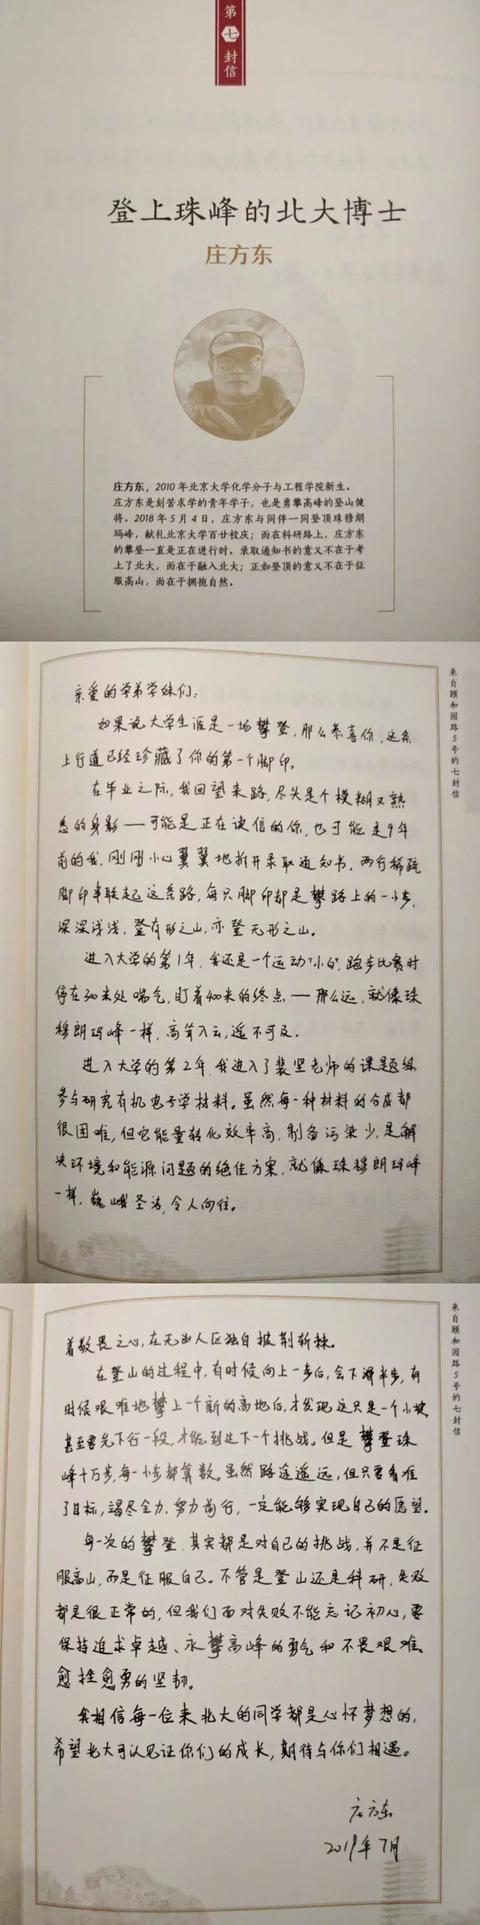 第七封信
登上珠峰的北大博士
庄方东
庄方东，2010年北京大学化学分子与工程学院新生。
庄方东是刻苦求学的青年学子，也是勇攀高峰的登山健
将。2018年5月4日，庄方东与同伴一同登顶珠穆朗
玛峰，献礼北京大学百廿校庆；而在科研路上，庄方东
的攀登一直是正在进行时。录取通知书的意义不在于考
上了北大，而在于融入北大；正如登顶的意义不在于征
服高山，而在于拥抱自然。
来自颐和园路5号的七封信
亲爱的学弟学妹们：
如果说大学生涯是一场攀登，那么恭喜你，这条
上行道已经珍藏了你的第一个脚印。
在毕业之际，我回望来路，尽头是个模糊又熟
悉的身影——可能是正在读信的你，也可能是9年
前的我，刚刚小心翼翼地拆开录取通知书，两行稀疏
脚印串联起这条路，每只脚印都是攀路上的一小步，
深深浅浅，登有形之山，亦登无形之山。
进入大学的第1年，我还是一个运动“小白”，跑步比赛时
停在300米处喘气，盯着400米的终点——那么远，就像珠
穆朗玛峰一样，高耸入云，遥不可及。
进入大学的第2年，我进入了裴坚老师的课题组
参与研究有机电子学材料。虽然每一种材料的合成都
很困难，但它能量转化效率高，制备污染少，是解
决环境和能源问题的绝佳方案，就像珠穆朗玛峰
一样，巍峨圣洁，令人向往。
来自颐和园路5号的七封信
着敬畏之心，在无人区独自披荆斩棘。
在登山的过程中，有时候向上一步后，会下滑半步，有
时候艰难地攀上一个新的高地后，才发现这只是一个小坡，
甚至要先下行一段，才能到达下一个挑战。但是攀登珠
峰十万步，每一小步都算数。虽然路途遥远，但只要看准
了目标，竭尽全力，努力前行，一定能够实现自己的愿望。
每一次的攀登，其实都是对自己的挑战，并不是征
服高山，而是征服自己。不管是登山还是科研，失败
都是很正常的，但我们面对失败不能忘记初心，要
保持追求卓越、永攀高峰的勇气和不畏艰难、
愈挫愈勇的坚韧。
我相信每一位来北大的同学都是心怀梦想的，
希望北大可以见证你们的成长，期待与你们相遇。
庄方东
2019年7月